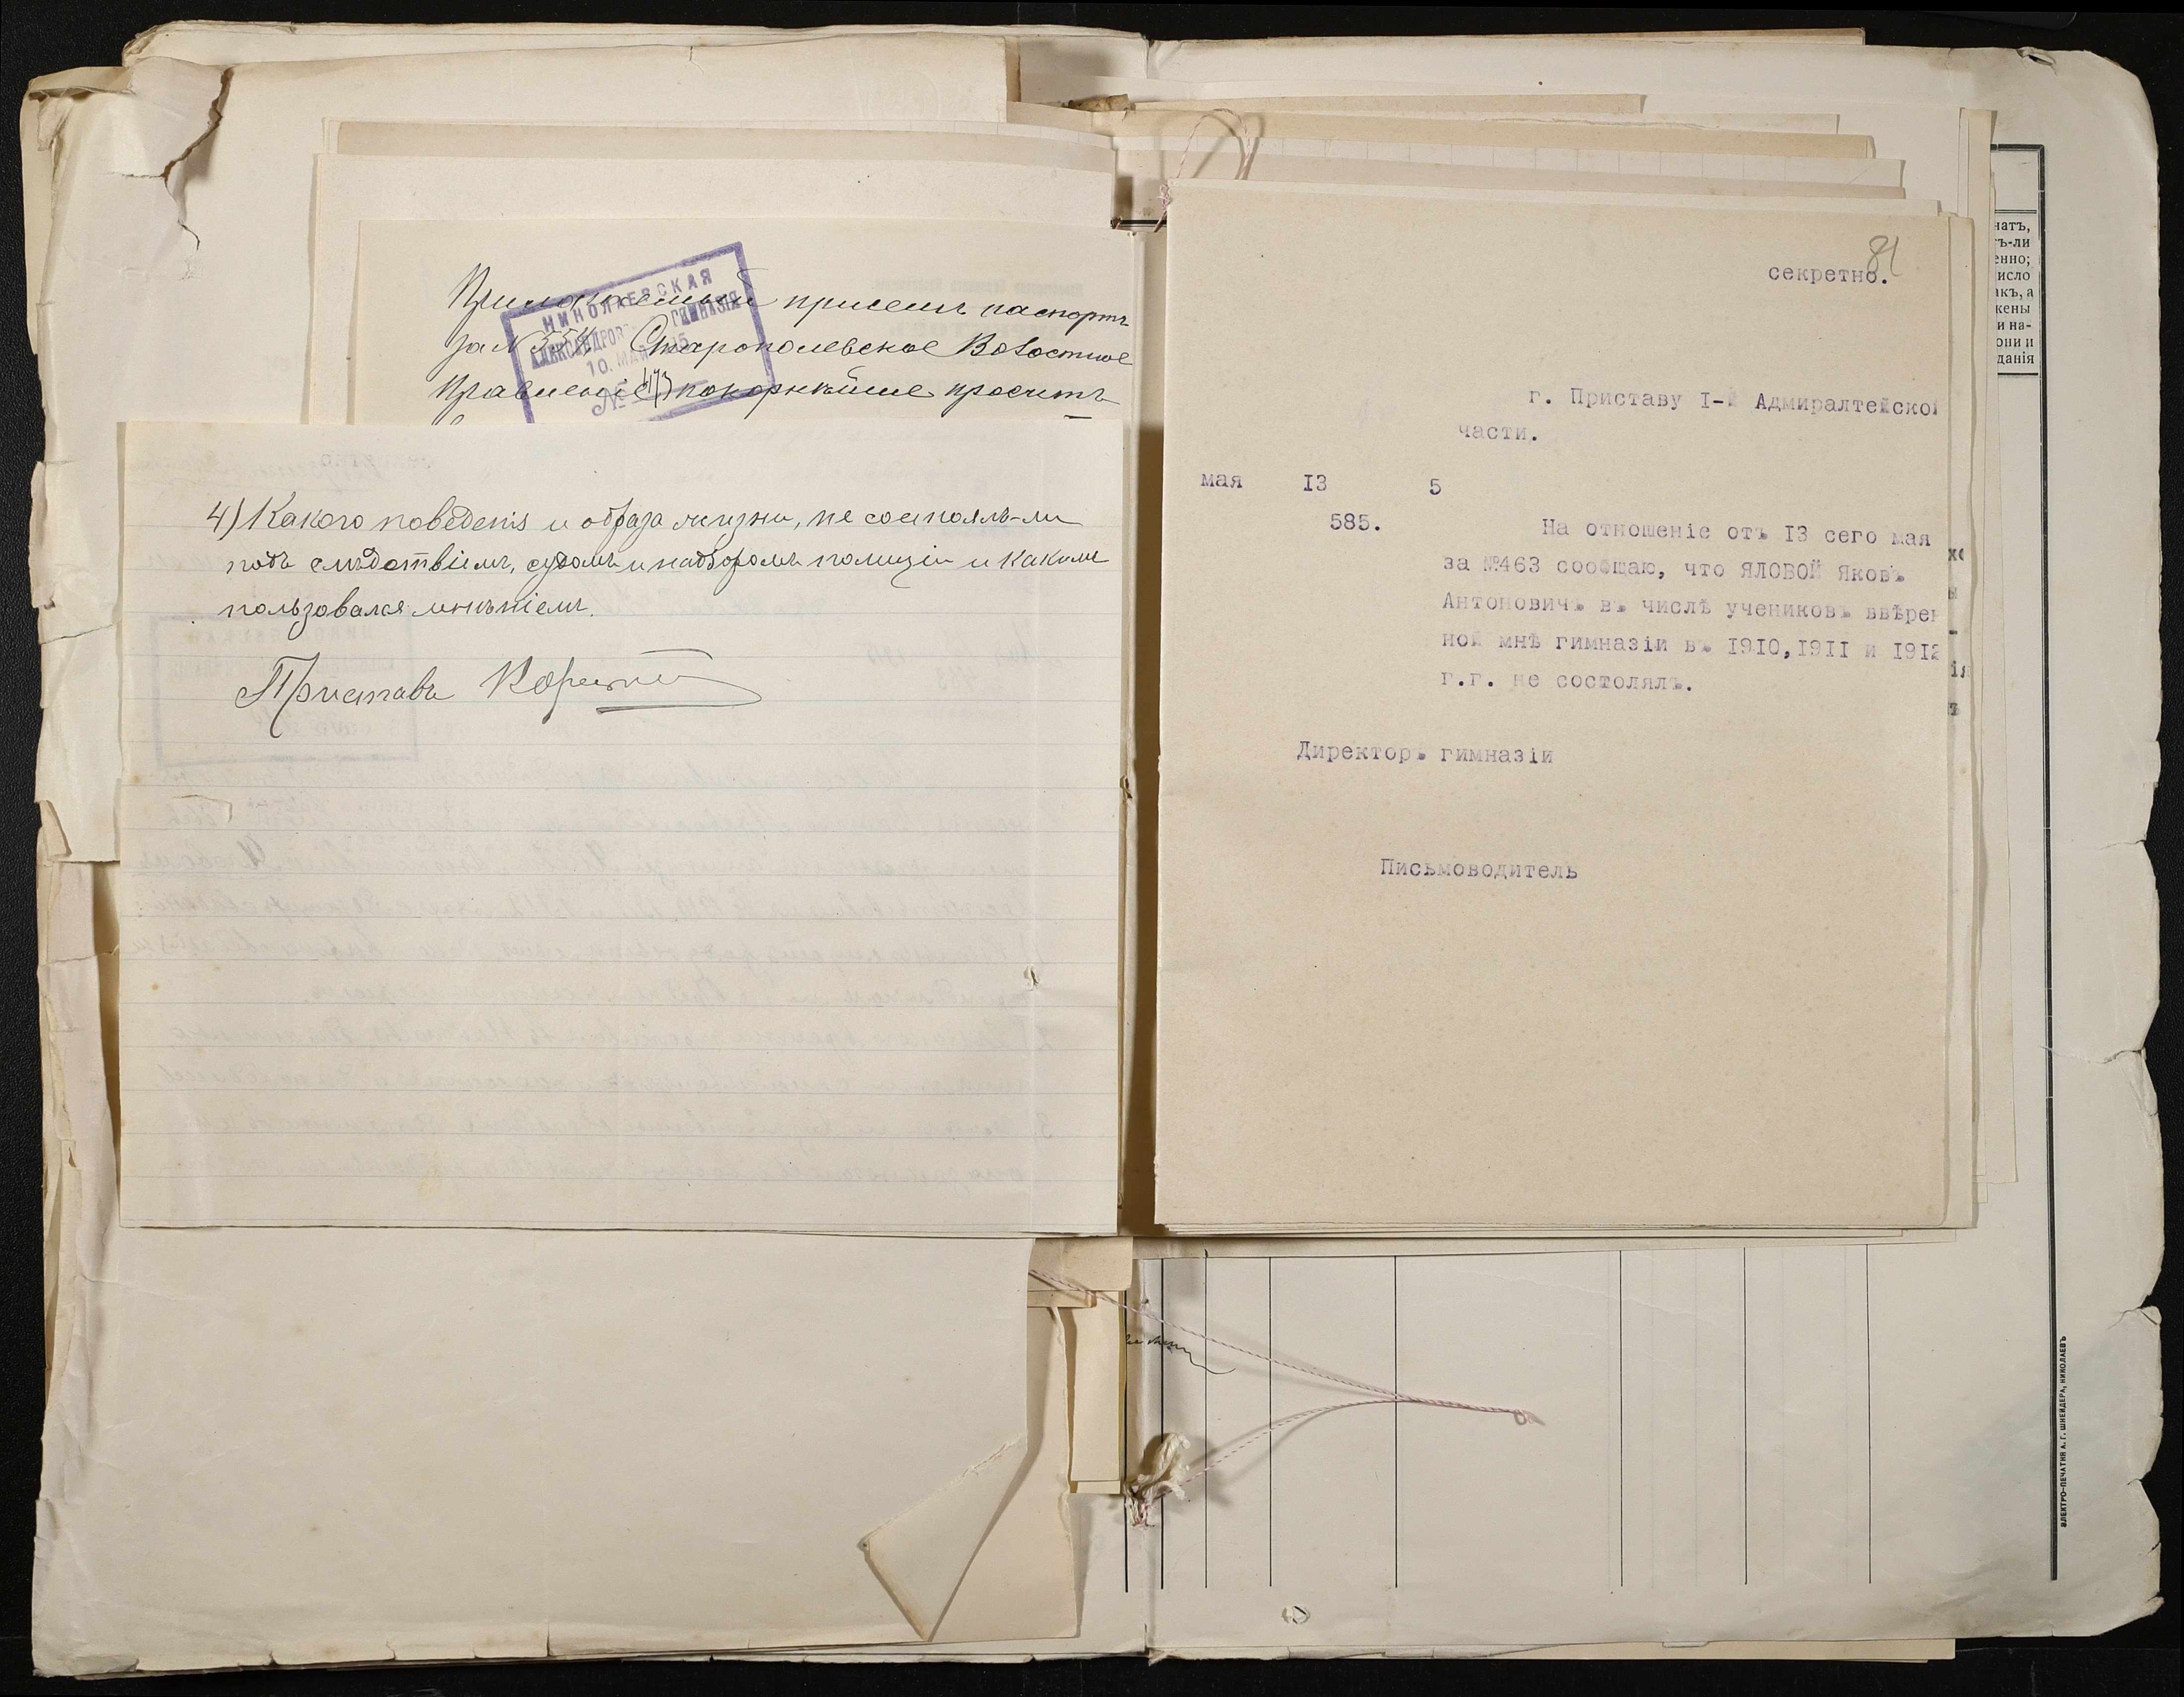 Прилагаемый при семъ паспортъ
за № 554, Старопольевское Волостное
Правленіе покорнѣйше проситъ
НИКОЛАЕВСКАЯ
ГИМНАЗІЯ
10. МАЯ
№ 473
4) Какого поведенія и образа жизни, не состоялъ-ли
подъ слѣдствіемъ, судомъ и надзоромъ полиціи и какимъ
пользовался мнѣніемъ.
Приставъ
81
секретно.
г. Приставу I-й Адмиралтейской
части.
мая 13 5
585.
На отношеніе отъ 13 сего мая
за №463 сообщаю, что ЯЛОВОЙ Яковъ
Антоновичъ въ числѣ учениковъ ввѣрен
ной мнѣ гимназіи въ 1910,1911 и 1912
г.г. не состолялъ.
Директоръ гимназіи
Письмоводитель
натъ,
ъ-ли
енно;
исло
акъ, а
жены
и на-
они и
данія
ЭЛЕКТРО-ПЕЧАТНЯ А. Г. ШНЕЙДЕРА, НИКОЛАЕВЪ